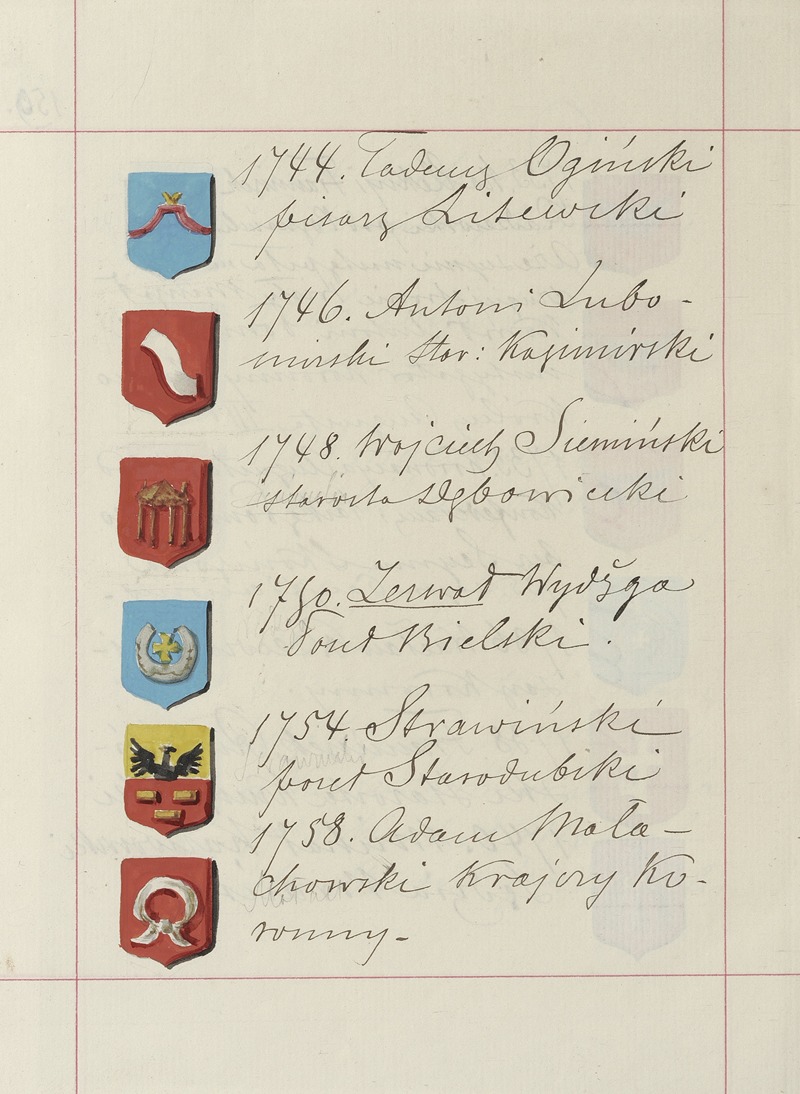 1744. Tadeusz Ogiński
pisarz Litewski
1746. Antoni Lubo-
mirski Star: Kazimirski
1748. Wojciech Siemiński
starosta Dębowiecki
1750. Zerwad Wydżga
Poseł Bielski.
1754. Strawiński
poseł Starodubski
1758. Adam Mała-
chowski Krajczy Ko-
ronny-